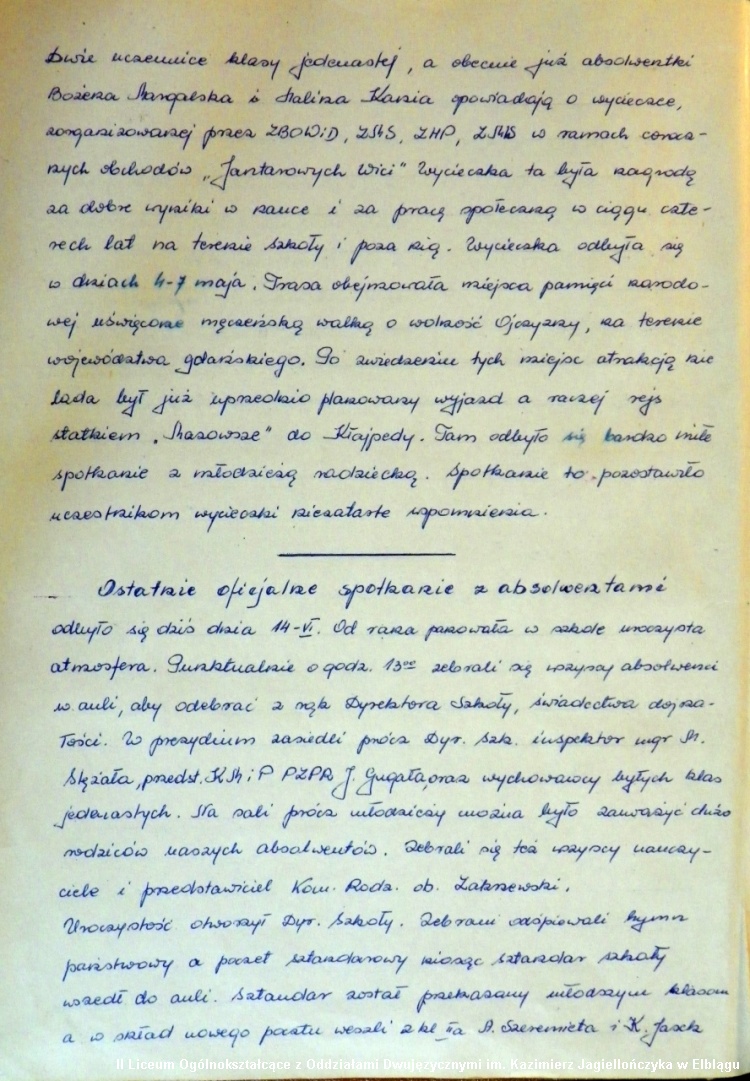 Dwie uczennice klasy jedenastej, a obecnie już absolwentki
Bożena Margalska i Halina Kania opowiadają o wycieczce,
zorganizowanej przez ZBOWiD, ZMS, ZHP, ZMW w ramach corocz-
nych obchodów „Jantarowych Wici" Wycieczka ta była nagrodą
za dobre wyniki w nauce i za pracę społeczną w ciągu czte-
rech lat na terenie szkoły i poza nią. Wycieczka odbyła się
w dniach 4-7 maja. Trasa obejmowała miejsca pamięci narodo-
wej uświęcone męczeńską walką o wolność Ojczyzny, na terenie
województwa gdańskiego. Po zwiedzeniu tych miejsc atrakcją nie
lada był już uprzednio planowany wyjazd a raczej rejs
statkiem „Mazowsze" do Kłajpedy. Tam odbyło się bardzo miłe
spotkanie z młodzieżą radziecką. Spotkanie to pozostawiło
uczestnikom wycieczki niezatarte wspomnienia.
Ostatnie oficjalne spotkanie z absolwentami
odbyło się dziś dnia 14-VI. Od rana panowała w szkole uroczysta
atmosfera. Punktualnie o godz. 13⁰⁰ zebrali się wszyscy absolwenci
w auli, aby odebrać z rąk Dyrektora Szkoły, świadectwa dojrza-
łości. W prezydium zasiedli prócz Dyr. Szk. inspektor mgr M.
Stężała, przedst. KM i P PZPR J. Gugała, oraz wychowawcy byłych klas
jedenastych. Na sali prócz młodzieży można było zauważyć dużo
rodziców naszych absolwentów. Zebrali się też wszyscy nauczy-
ciele i przedstawiciel Kom. Rodz. ob. Zakrzewski.
Uroczystość otworzył Dyr. Szkoły. Zebrani odśpiewali hymn
państwowy a poczet sztandarowy niosąc sztandar szkoły
wszedł do auli. Sztandar został przekazany młodszym klasom
a w skład nowego pocztu weszli z kl IIa A. Szeremieta i K. Jasek
II Liceum Ogólnokształcące z Oddziałami Dwujęzycznymi im. Kazimierz Jagiellończyka w Elblągu